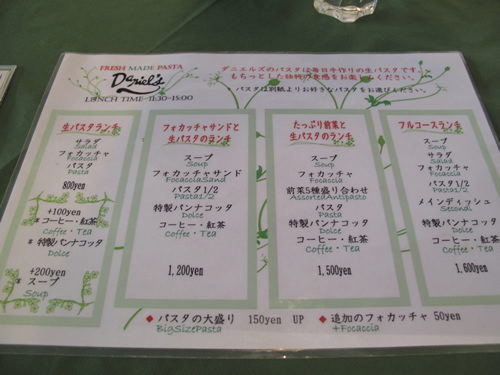 FRESH MADE PASTA
Daniel's
LUNCH TIME 11:30-15:00
ダニエルズのパスタは毎日手作りの生パスタです。
もちっとした独特の食感をお楽しみください。
パスタは別紙よりお好きなパスタをお選びください。
生パスタランチ
サラダ
Salad
フォカッチャ
Focaccia
パスタ
Pasta
800yen
+100yen
* コーヒー・紅茶
Coffee・Tea
* 特製パンナコッタ
Dolce
+200yen
* スープ
Soup
フォカッチャサンドと
生パスタのランチ
スープ
Soup
フォカッチャサンド
FocacciaSand
パスタ1/2
Pasta1/2
特製パンナコッタ
Dolce
コーヒー・紅茶
Coffee・Tea
1,200yen
たっぷり前菜と
生パスタのランチ
スープ
Soup
フォカッチャ
Focaccia
前菜5種盛り合わせ
AssortedAntipasto
パスタ
Pasta
特製パンナコッタ
Dolce
コーヒー・紅茶
Coffee・Tea
1,500yen
フルコースランチ
スープ
Soup
サラダ
Salad
フォカッチャ
Focaccia
パスタ1/2
Pasta1/2
メインディッシュ
Secondi
特製パンナコッタ
Dolce
コーヒー・紅茶
Coffee・Tea
1,600yen
◆ パスタの大盛り 150yen UP
BigSizePasta
◆ 追加のフォカッチャ 50yen
+Focaccia